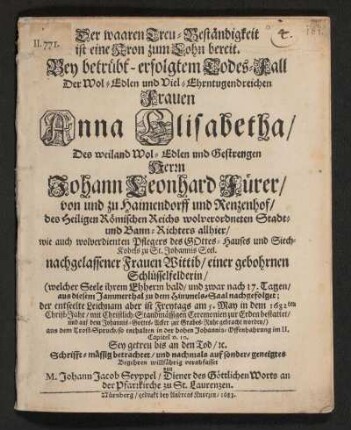 II. 771.
4.
Der waaren Treu-Beständigkeit
ist eine Kron zum Lohn bereit.
Bey betrübt-erfolgtem Todes-Fall
Der Wol-Edlen und Viel-Ehrntugendreichen
Frauen
Anna Elisabetha/
Des weiland Wol-Edlen und Gestrengen
Herrn
Johann Leonhard Fürer/
von und zu Haimendorff und Renzenhof/
des Heiligen Römischen Reichs wolverordneten Stadt-
und Bann-Richters allhier/
wie auch wolverdienten Pflegers des GOttes-Hauses und Siech-
Kobels zu St. Johannis Seel.
nachgelassener Frauen Wittib/ einer gebohrnen
Schlüsselfelderin/
(welcher Seele ihrem Ehherrn bald/ und zwar nach 17. Tagen/
aus diesem Jammerthal zu dem Himmels-Saal nachgefolget;
der entseelte Leichnam aber ist Freytags am May in dem
Christ-Jahr/ mit Christlich-Standmässigen Ceremonien zur Erden bestattet/
und auf dem Johannis-Gottes-Acker zur Grabes-Ruhe gebracht worden/)
aus dem Trost-Spruch so enthalten in der hohen Johannis-Offenbahrung im II.
Capitel v. 10.
Sey getreu bis an den Tod/ ꝛc.
Schrifft-mässig betrachtet/ und nachmals auf sonder-geneigtes
Begehren willfährig verabfasset
von
M. Johann Jacob Seyppel/ Diener des Göttlichen Worts an
der Pfarrkirche zu St. Laurenzen.
Nürnberg/ gedruckt bey Andreas Knorzen/ 1683.